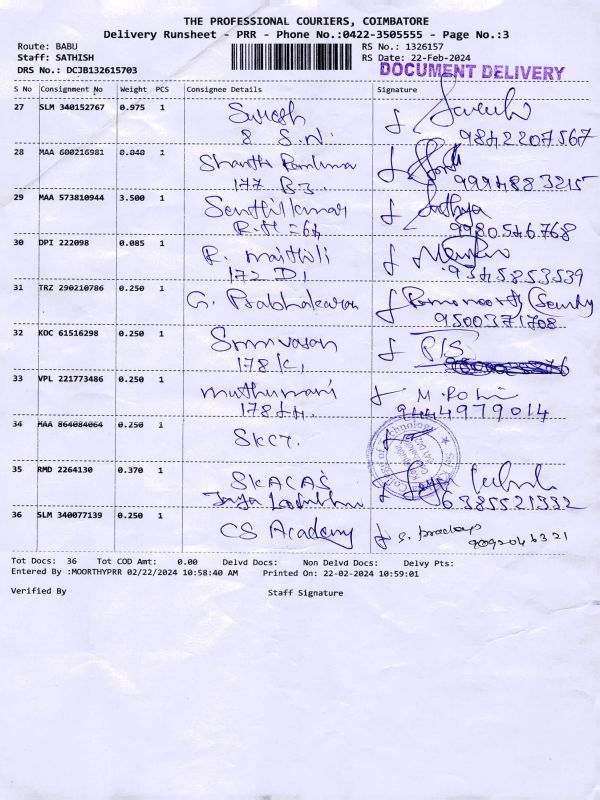 THE PROFESSIONAL COURIERS, COIMBATORE
Delivery Runsheet - PRR - Phone No.:0422-3505555 - Page No.:3
Route: BABU RS No.: 1326157
Staff: SATHISH RS Date: 22-Feb-2024
DRS No.: DCJB132615703 DOCUMENT DELIVERY
S No Consignment No Weight PCS Consignee Details Signature
27 SLM 340152767 0.975 1 Suresh
8 S.N. 9842207567
28 MAA 600216981 0.040 1 Shanthi
177 B3. 9994883215
29 MAA 573810944 3.500 1 Senthilkumar Sathya
9980546768
30 DPI 222098 0.085 1 R. maithili
172 D1 9345853539
31 TRZ 290210786 0.250 1 G. Prabhakaran
9500371708
32 KOC 61516298 0.250 1 Srinivasan
178 K,
33 VPL 221773486 0.250 1 muthumani
9444979014
34 MAA 864084064 0.250 1 SKCT.
35 RMD 2264130 0.370 1 SKACAS
6385521332
36 SLM 340077139 0.250 1 CS Academy
Tot Docs: 36 Tot COD Amt: 0.00 Delvd Docs: Non Delvd Docs: Delvy Pts:
Entered By :MOORTHYPRR 02/22/2024 10:58:40 AM Printed On: 22-02-2024 10:59:01
Verified By Staff Signature